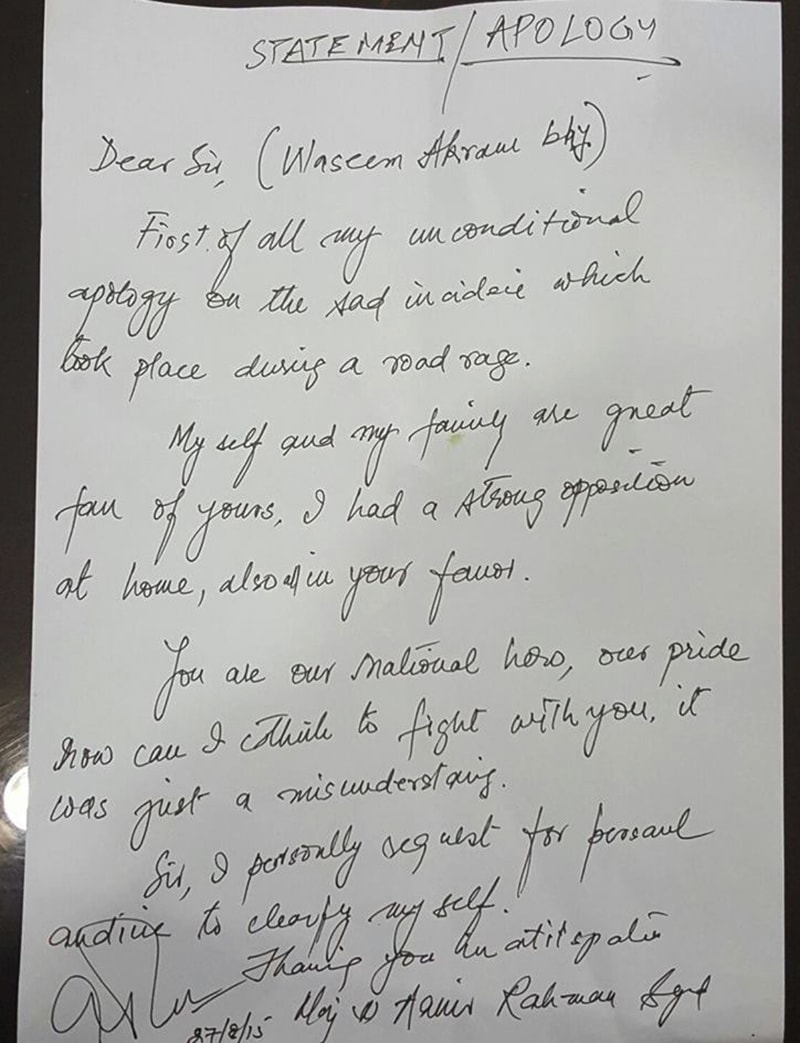 STATEMENT/APOLOGY
Dear Sir, (Waseem Akram bhy)
First of all my unconditional
apology on the sad incident which
took place during a road rage.
My self and my family are great
fan of yours, I had a strong opposition
at home, also all in your favor.
You are our national hero, our pride
how can I think to fight with you, it
was just a misunderstaing.
Sir, I personlly request for personl
to clearfy my self.
Thanking you in
27/8/15 Maj Aamir Rahman